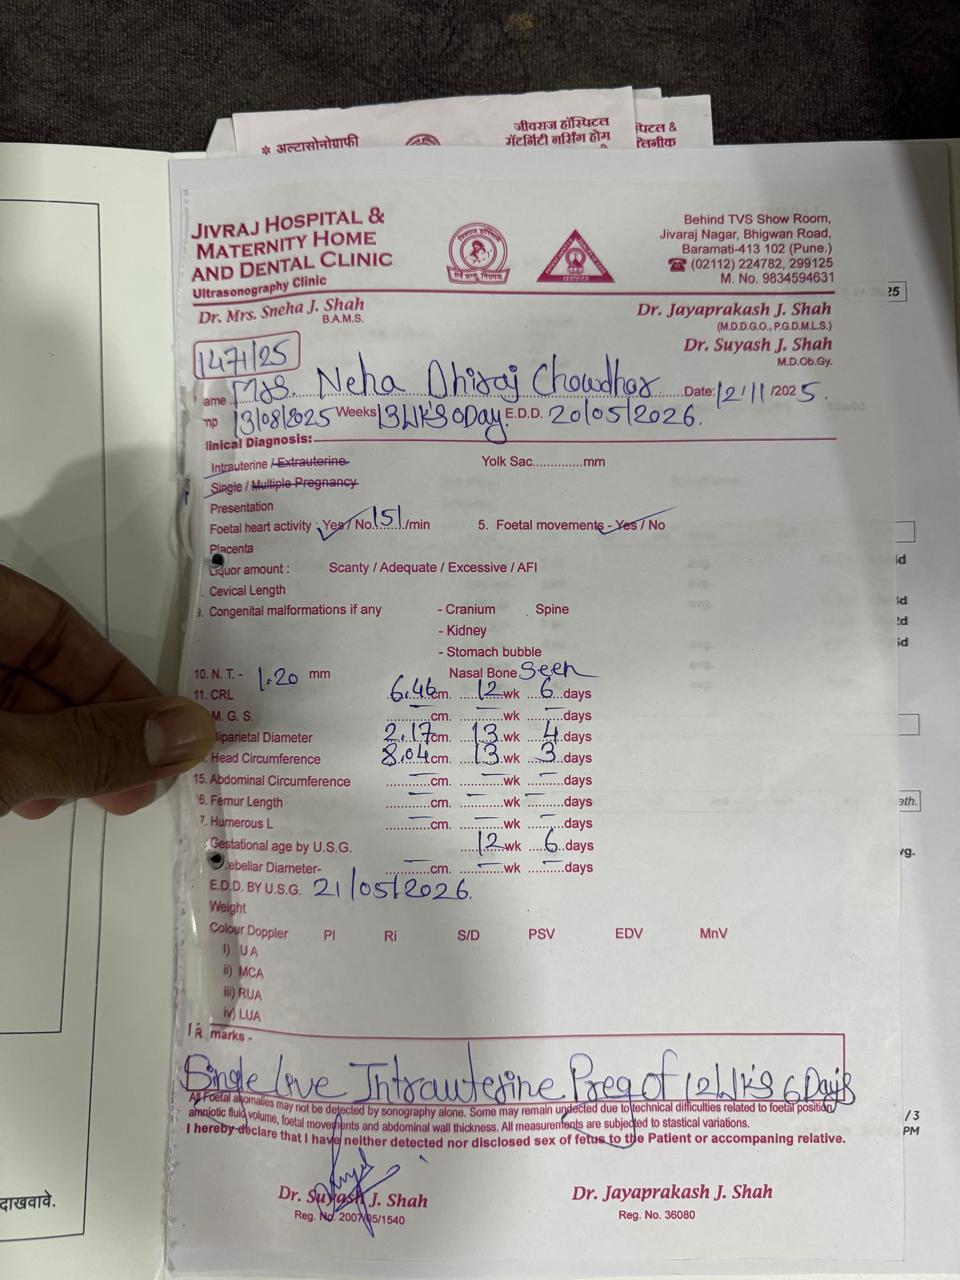 * अल्टासोनोग्राफी
जीवराज हॉस्पिटल
मॅटर्निटी नर्सिंग होम
पिटल &
लिनीक
JIVRAJ HOSPITAL &
MATERNITY HOME
AND DENTAL CLINIC
Ultrasonography Clinic
Behind TVS Show Room,
Jivaraj Nagar, Bhigwan Road,
Baramati-413 102 (Pune.)
☎ (02112) 224782, 299125
M. No. 9834594631
25
Dr. Mrs. Sneha J. Shah
B.A.M.S.
Dr. Jayaprakash J. Shah
(M.D.D.G.O., P.G.D.M.L.S.)
Dr. Suyash J. Shah
M.D.Ob.Gy.
1471/25
ame Mrs. Neha Dhiraj Chowdhar Date: 12/11/2025.
mp 13/08/2025 Weeks 13WK'S 0Day. E.D.D. 20/05/2026.
linical Diagnosis:
Intrauterine / Extrauterine
Yolk Sac.............mm
Single / Multiple Pregnancy
Presentation
Foetal heart activity : Yes / No 151 /min 5. Foetal movements - Yes / No
Placenta
Liquor amount : Scanty / Adequate / Excessive / AFI
Cevical Length
9. Congenital malformations if any - Cranium Spine
- Kidney
- Stomach bubble
10. N. T. - 1.20 mm Nasal Bone Seen
11. CRL 6.46 cm. 12 wk 6 days
M. G. S. — cm. — wk — days
Biparietal Diameter 2.17 cm. 13 wk 4 days
Head Circumference 8.04 cm. 13 wk 3 days
15. Abdominal Circumference — cm. — wk — days
6. Femur Length — cm. — wk — days
7. Humerous L — cm. — wk — days
Gestational age by U.S.G. 12 wk 6 days
ebellar Diameter- — cm. — wk — days
E.D.D. BY U.S.G. 21/05/2026.
Weight
Colour Doppler PI Ri S/D PSV EDV MnV
i) UA
ii) MCA
iii) RUA
iv) LUA
R marks -
Single Live Intrauterine Preg of 12WK'S 6Day's
All Foetal anomalies may not be detected by sonography alone. Some may remain undected due to technical difficulties related to foetal position,
amniotic fluid volume, foetal movements and abdominal wall thickness. All measurements are subjected to stastical variations.
I hereby declare that I have neither detected nor disclosed sex of fetus to the Patient or accompaning relative.
/ 3
PM
Dr. Suyash J. Shah
Reg. No. 2007/05/1540
Dr. Jayaprakash J. Shah
Reg. No. 36080
दाखवावे.